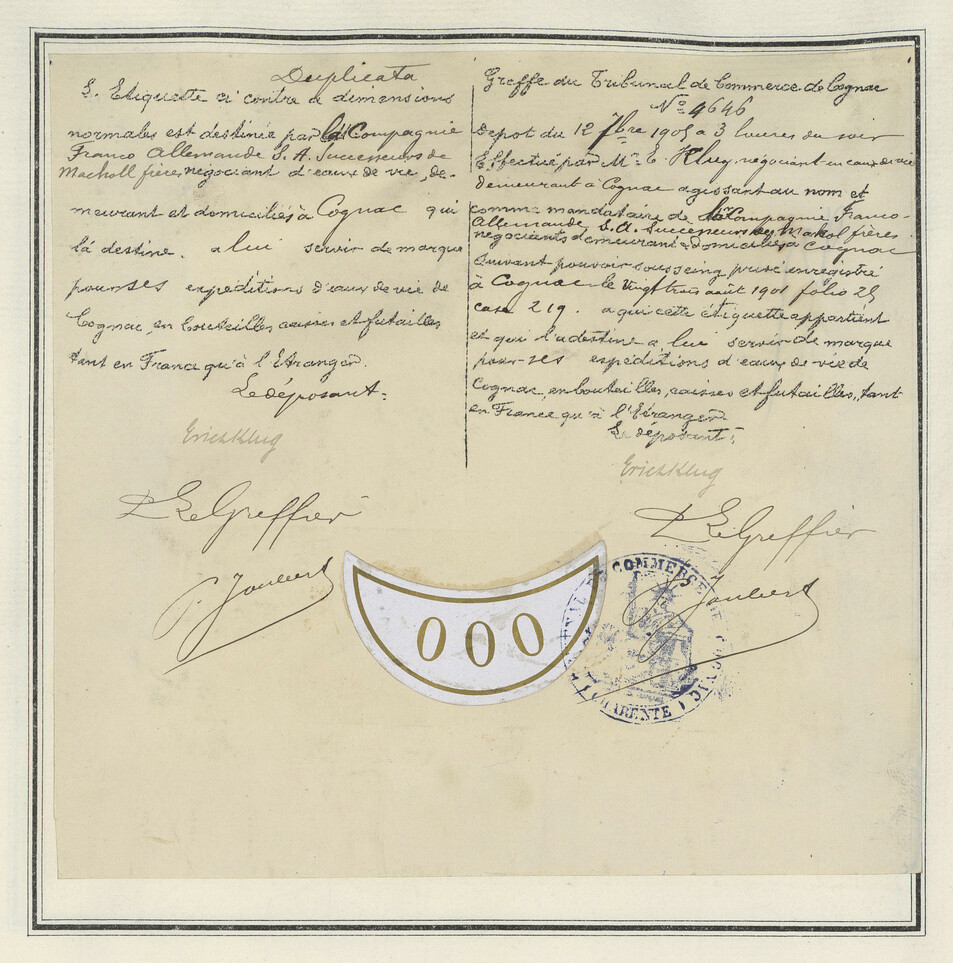 Duplicata
L. Etiquette ci contre a dimensions
normales est destinée par la Compagnie
Franco Allemande S. A. Successeurs de
Macholl frères négociant d'eaux de vie, de-
meurant et domiciliés à Cognac qui
la destine a lui servir de marque
pour ses expéditions d'eaux de vie de
Cognac, en bouteilles caisses et futailles
tant en France qu'à l'Etranger.
Le déposant:
Erich Klug
Le Greffier
Joubert
Greffe du Tribunal de Commerce de Cognac
No 4646
Depot du 12 7bre 1901 a 3 heures du soir
Effectué par Mr. E. Klug, négociant en eaux de vie
demeurant à Cognac agissant au nom et
comme mandataire de la Compagnie Franco-
Allemande S. A. Successeurs de Macholl frères
négociants demeurant & domiciliés à Cognac
suivant pouvoir sous seing privé enregistré
à Cognac le vingt trois août 1901 folio 25
case 219. a qui cette étiquette appartient
et qui l'a destine a lui servir de marque
pour ses expéditions d'eaux de vie de
Cognac, en bouteilles, caisses et futailles, tant
en France qu'à l'Etranger
Le déposant:
Erich Klug
Le Greffier
Joubert
000
TRIBUNAL DE COMMERCE DE COGNAC
(CHARENTE)